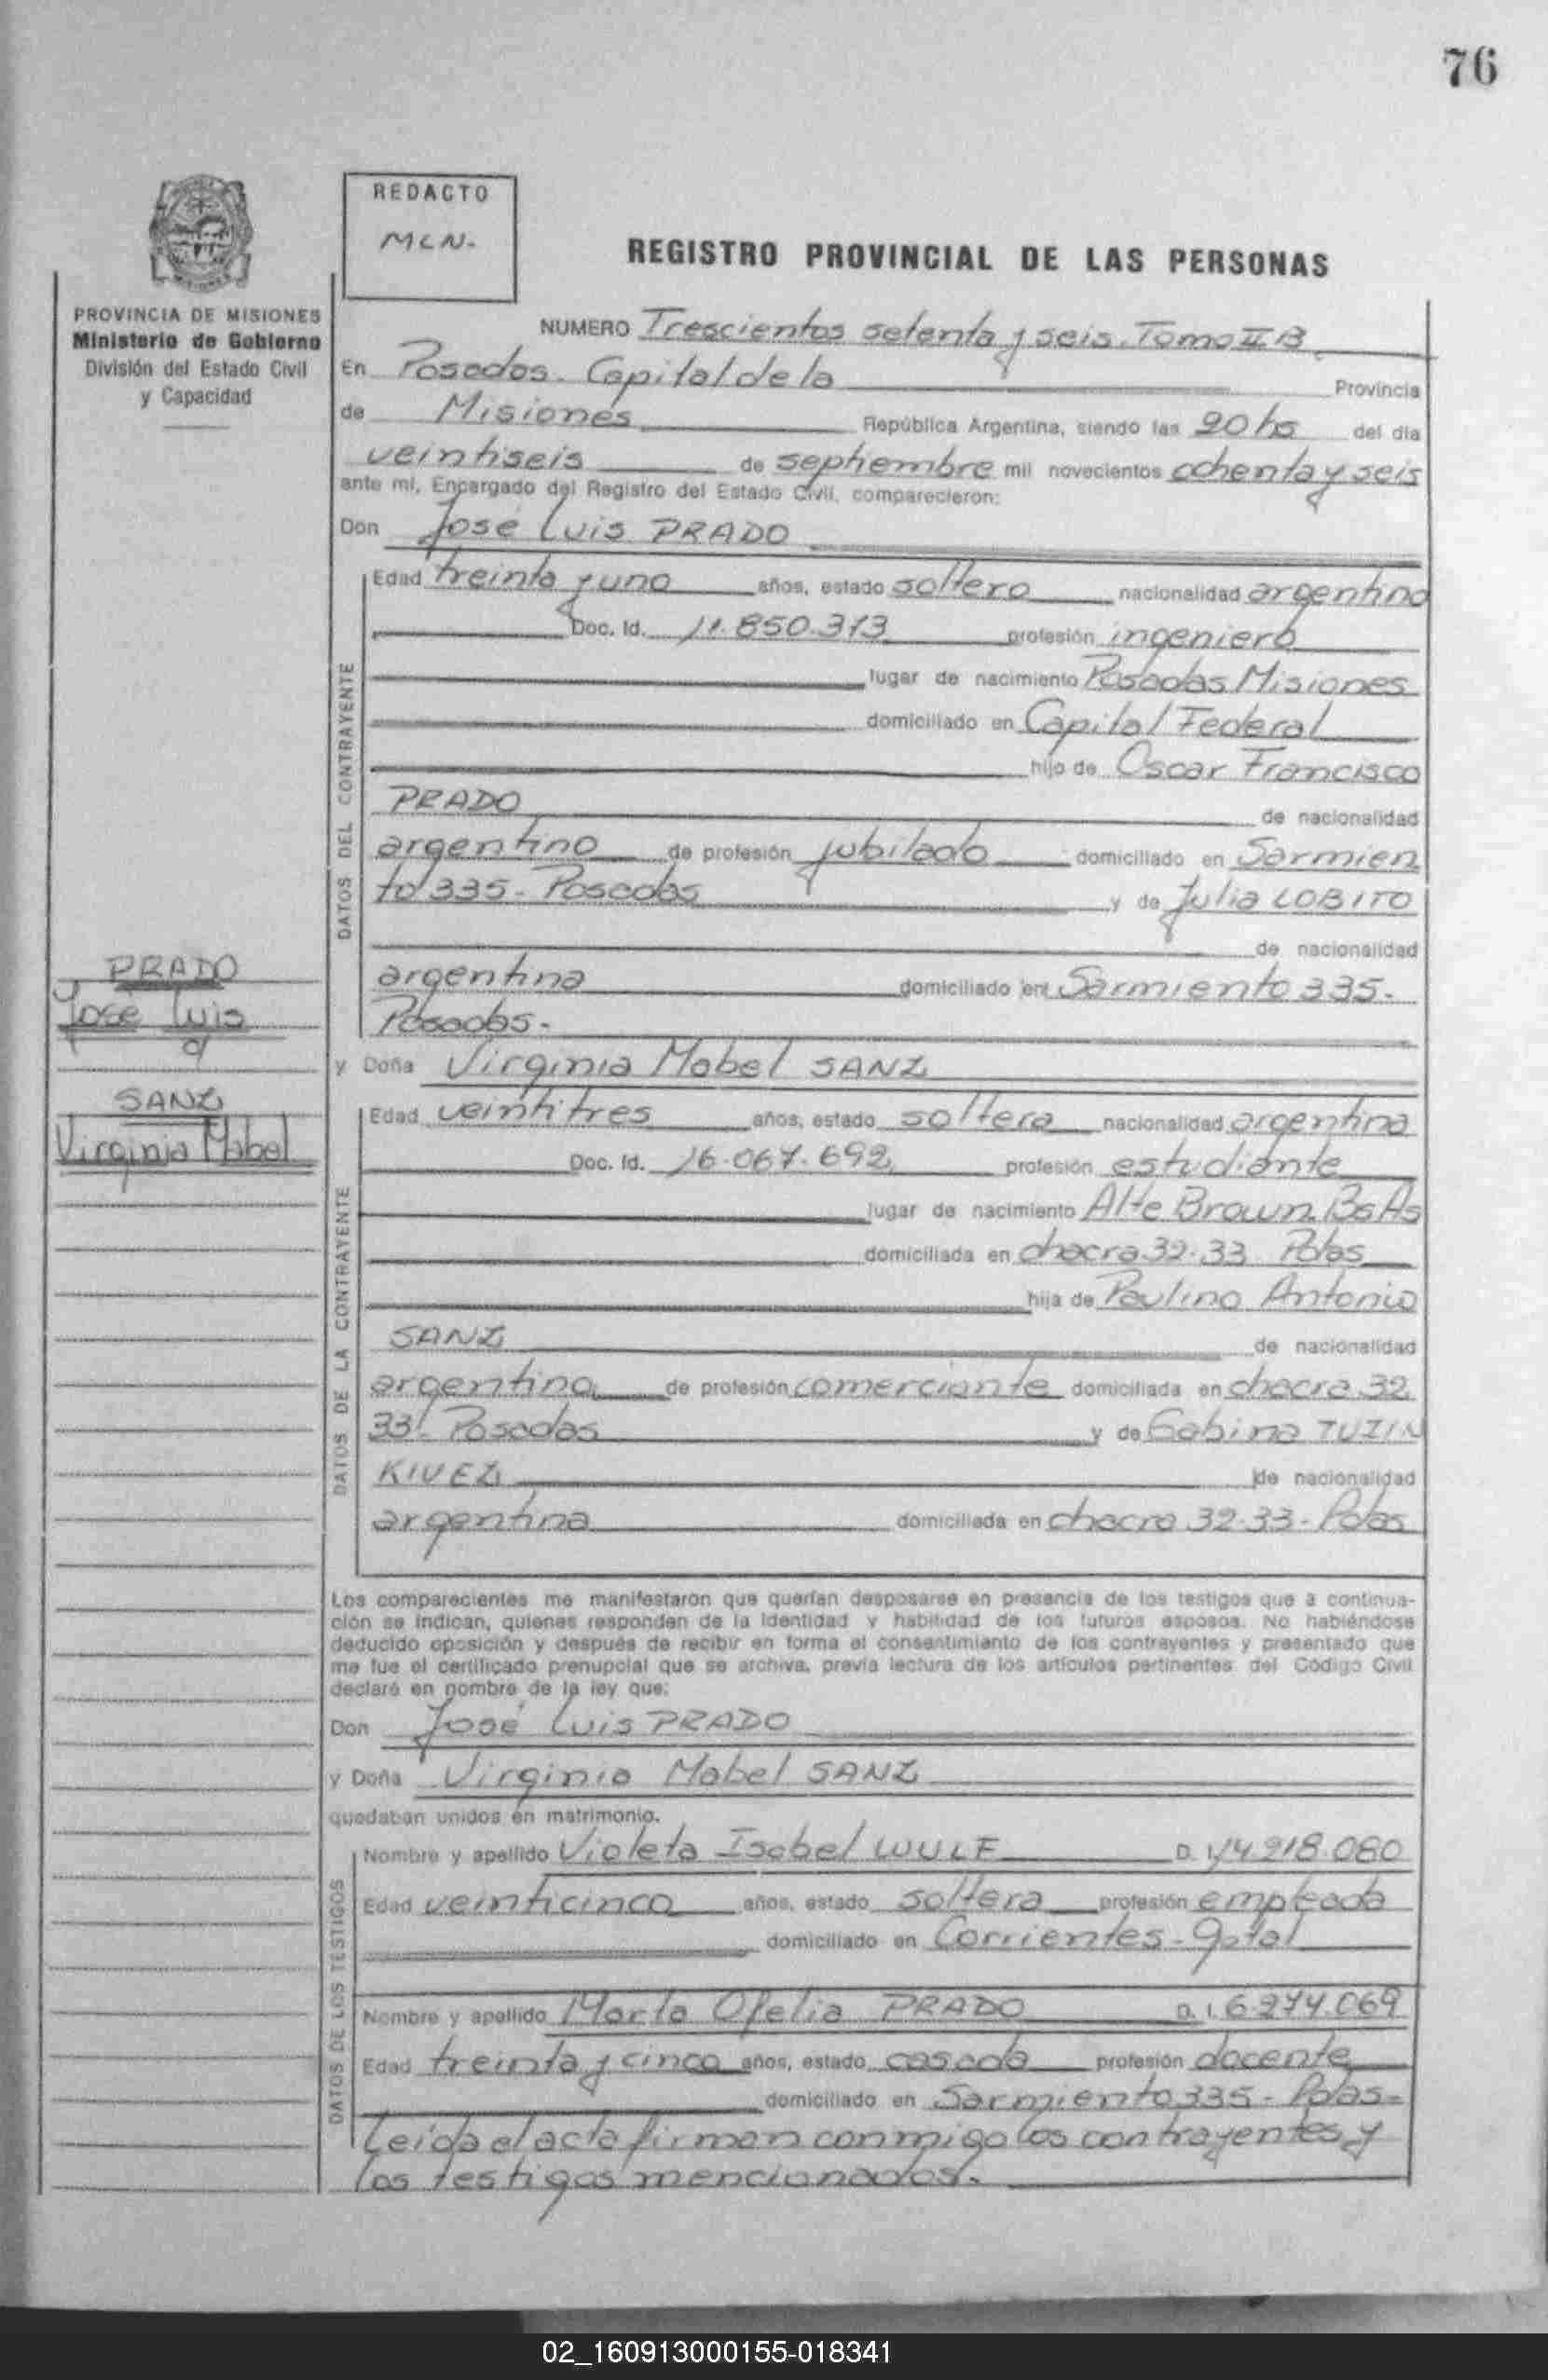 76
REDACTO
MLN.
REGISTRO PROVINCIAL DE LAS PERSONAS
PROVINCIA DE MISIONES
Ministerio de Gobierno
División del Estado Civil
y Capacidad
NUMERO Trescientos setenta y seis. Tomo II B
En Posadas. Capital de la Provincia
de Misiones República Argentina, siendo las 20 hs del día
veintiseis de septiembre mil novecientos ochenta y seis
ante mí, Encargado del Registro del Estado Civil, comparecieron:
Don José Luis PRADO
DATOS DEL CONTRAYENTE
Edad treinta y uno años, estado soltero nacionalidad argentino
Doc. Id. 11.850.313 profesión ingeniero
lugar de nacimiento Posadas Misiones
domiciliado en Capital Federal
hijo de Oscar Francisco
PRADO de nacionalidad
argentino de profesión jubilado domiciliado en Sarmien
to 335 - Posadas y de Julia LOBITO
de nacionalidad
argentina domiciliado en Sarmiento 335.
Posadas.
PRADO
José Luis
y
SANZ
Virginia Mabel
y Doña Virginia Mabel SANZ
DATOS DE LA CONTRAYENTE
Edad veintitres años, estado soltera nacionalidad argentina
Doc. Id. 16.067.692 profesión estudiante
lugar de nacimiento Alte Brown. Bs As
domiciliada en chacra 32.33 Pdas
hija de Paulino Antonio
SANZ de nacionalidad
argentino de profesión comerciante domiciliada en chacra 32
33. Posadas y de Gabina TUZIN
KIVEZ de nacionalidad
argentina domiciliada en chacra 32.33 - Pdas
Los comparecientes me manifestaron que querían desposarse en presencia de los testigos que a continua-
ción se indican, quienes responden de la identidad y habilidad de los futuros esposos. No habiéndose
deducido oposición y después de recibir en forma el consentimiento de los contrayentes y presentado que
me fue el certificado prenupcial que se archiva, previa lectura de los artículos pertinentes del Código Civil
declaré en nombre de la ley que:
Don José Luis PRADO
y Doña Virginia Mabel SANZ
quedaban unidos en matrimonio.
DATOS DE LOS TESTIGOS
Nombre y apellido Violeta Isabel WULF D. I. 14 218.080
Edad veinticinco años, estado soltera profesión empleada
domiciliado en Corrientes -
Nombre y apellido Marta Ofelia PRADO D. I. 6.274.069
Edad treinta y cinco años, estado casada profesión docente
domiciliado en Sarmiento 335 - Pdas-
Leída el acta firman conmigo los contrayentes y
los testigos mencionados.
02_160913000155-018341